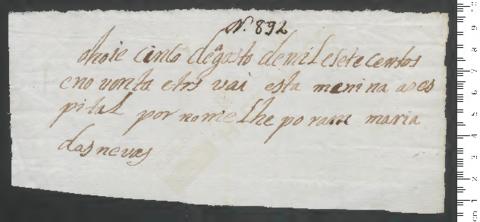 N. 892
ohoie cinco degosto demil esete centos
eno venta etrs vai esta menina aoes
pital por nome lhe poram maria
das neves